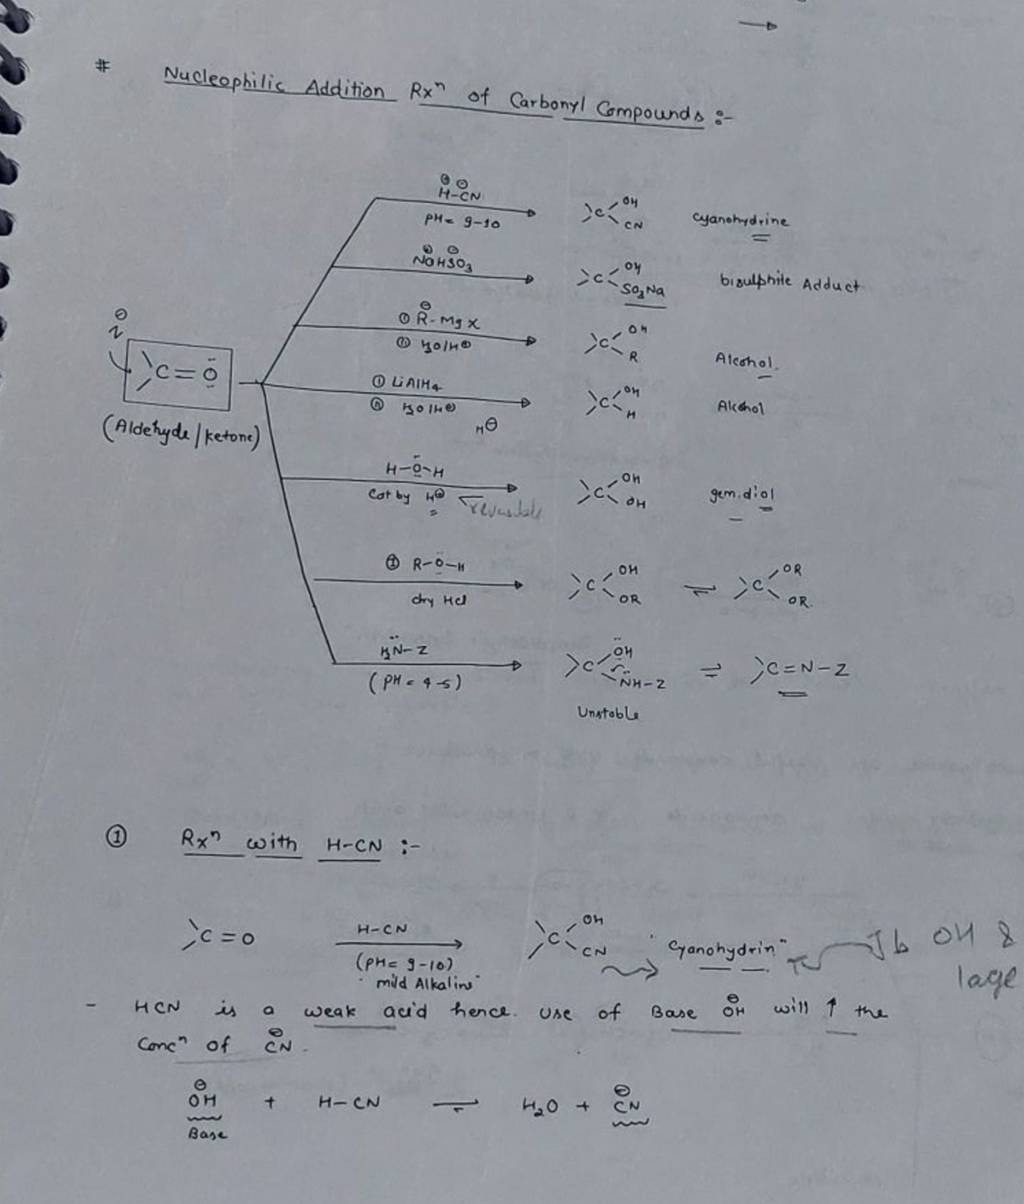 # Nucleophilic Addition Rxⁿ of Carbonyl Compounds :-
⊕ ⊖
H-CN
PH= 9-10
>C< OH CN
Cyanohydrine
⊕ ⊖
NaHSO3
>C< OH SO3Na
bisulphite Adduct
⊖
① R-MgX
② H3O/H⊕
>C< OH R
Alcohol
① LiAlH4
② H3O/H⊕
H⊖
>C< OH H
Alcohol
⊖
N
>C=O
(Aldehyde/ketone)
H-O-H
Cat by H⊕
reversible
>C< OH OH
gem.diol
① R-O-H
dry HCl
>C< OH OR ⇌ >C< OR OR
H2N-Z
(PH = 4-5)
>C< OH NH-Z ⇌ >C=N-Z
Unstable
① Rxⁿ with H-CN :-
>C=O
H-CN
(PH= 9-10)
"mild Alkaline"
>C< OH CN
"Cyanohydrin"
Jb OH &
lage
- HCN is a weak acid hence. Use of Base ⊖OH will ↑ the
Concⁿ of ⊖CN.
⊖OH + H-CN ⇌ H2O + ⊖CN
Base